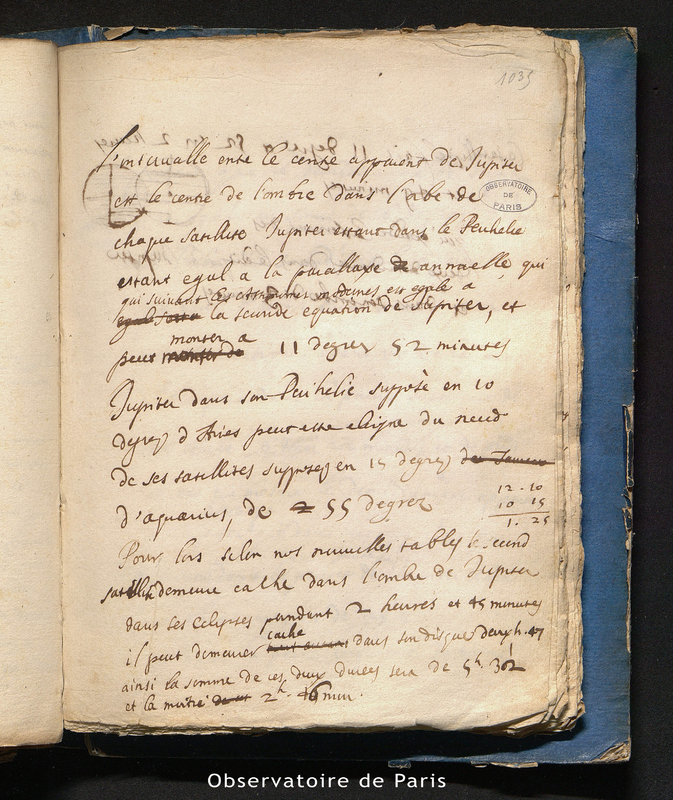 1035
L'interualle entre le centre apparent de Jupiter
OBSERVATOIRE DE PARIS
est le centre de l'ombre dans l'orbe de
chaque satellite Jupiter estant dans le Perihelie
estant egal a la parallaxe annuelle, qui
qui suivant les Astronomes modernes est egale a
la seconde equation de Jupiter, et
peut monter a 11 degrez 52 minutes
Jupiter dans son Perihelie supposé en 10
degrez d'Aries peut estre eloigné du neud
de ses satellites supposez en 15 degrez
d'aquarius, de 55 degrez
12 . 10
10 15
1. 25
Pour lors selon nos nouvelles tables le second
satellite demeure caché dans l'ombre de Jupiter
dans ses eclipses pendant 2 heures et 45 minutes
il peut demeurer caché dans son disque deux h. 47
ainsi la somme de ces deux durées sera de 5h. 32
et la moitié 2h. 46 min.
Observatoire de Paris